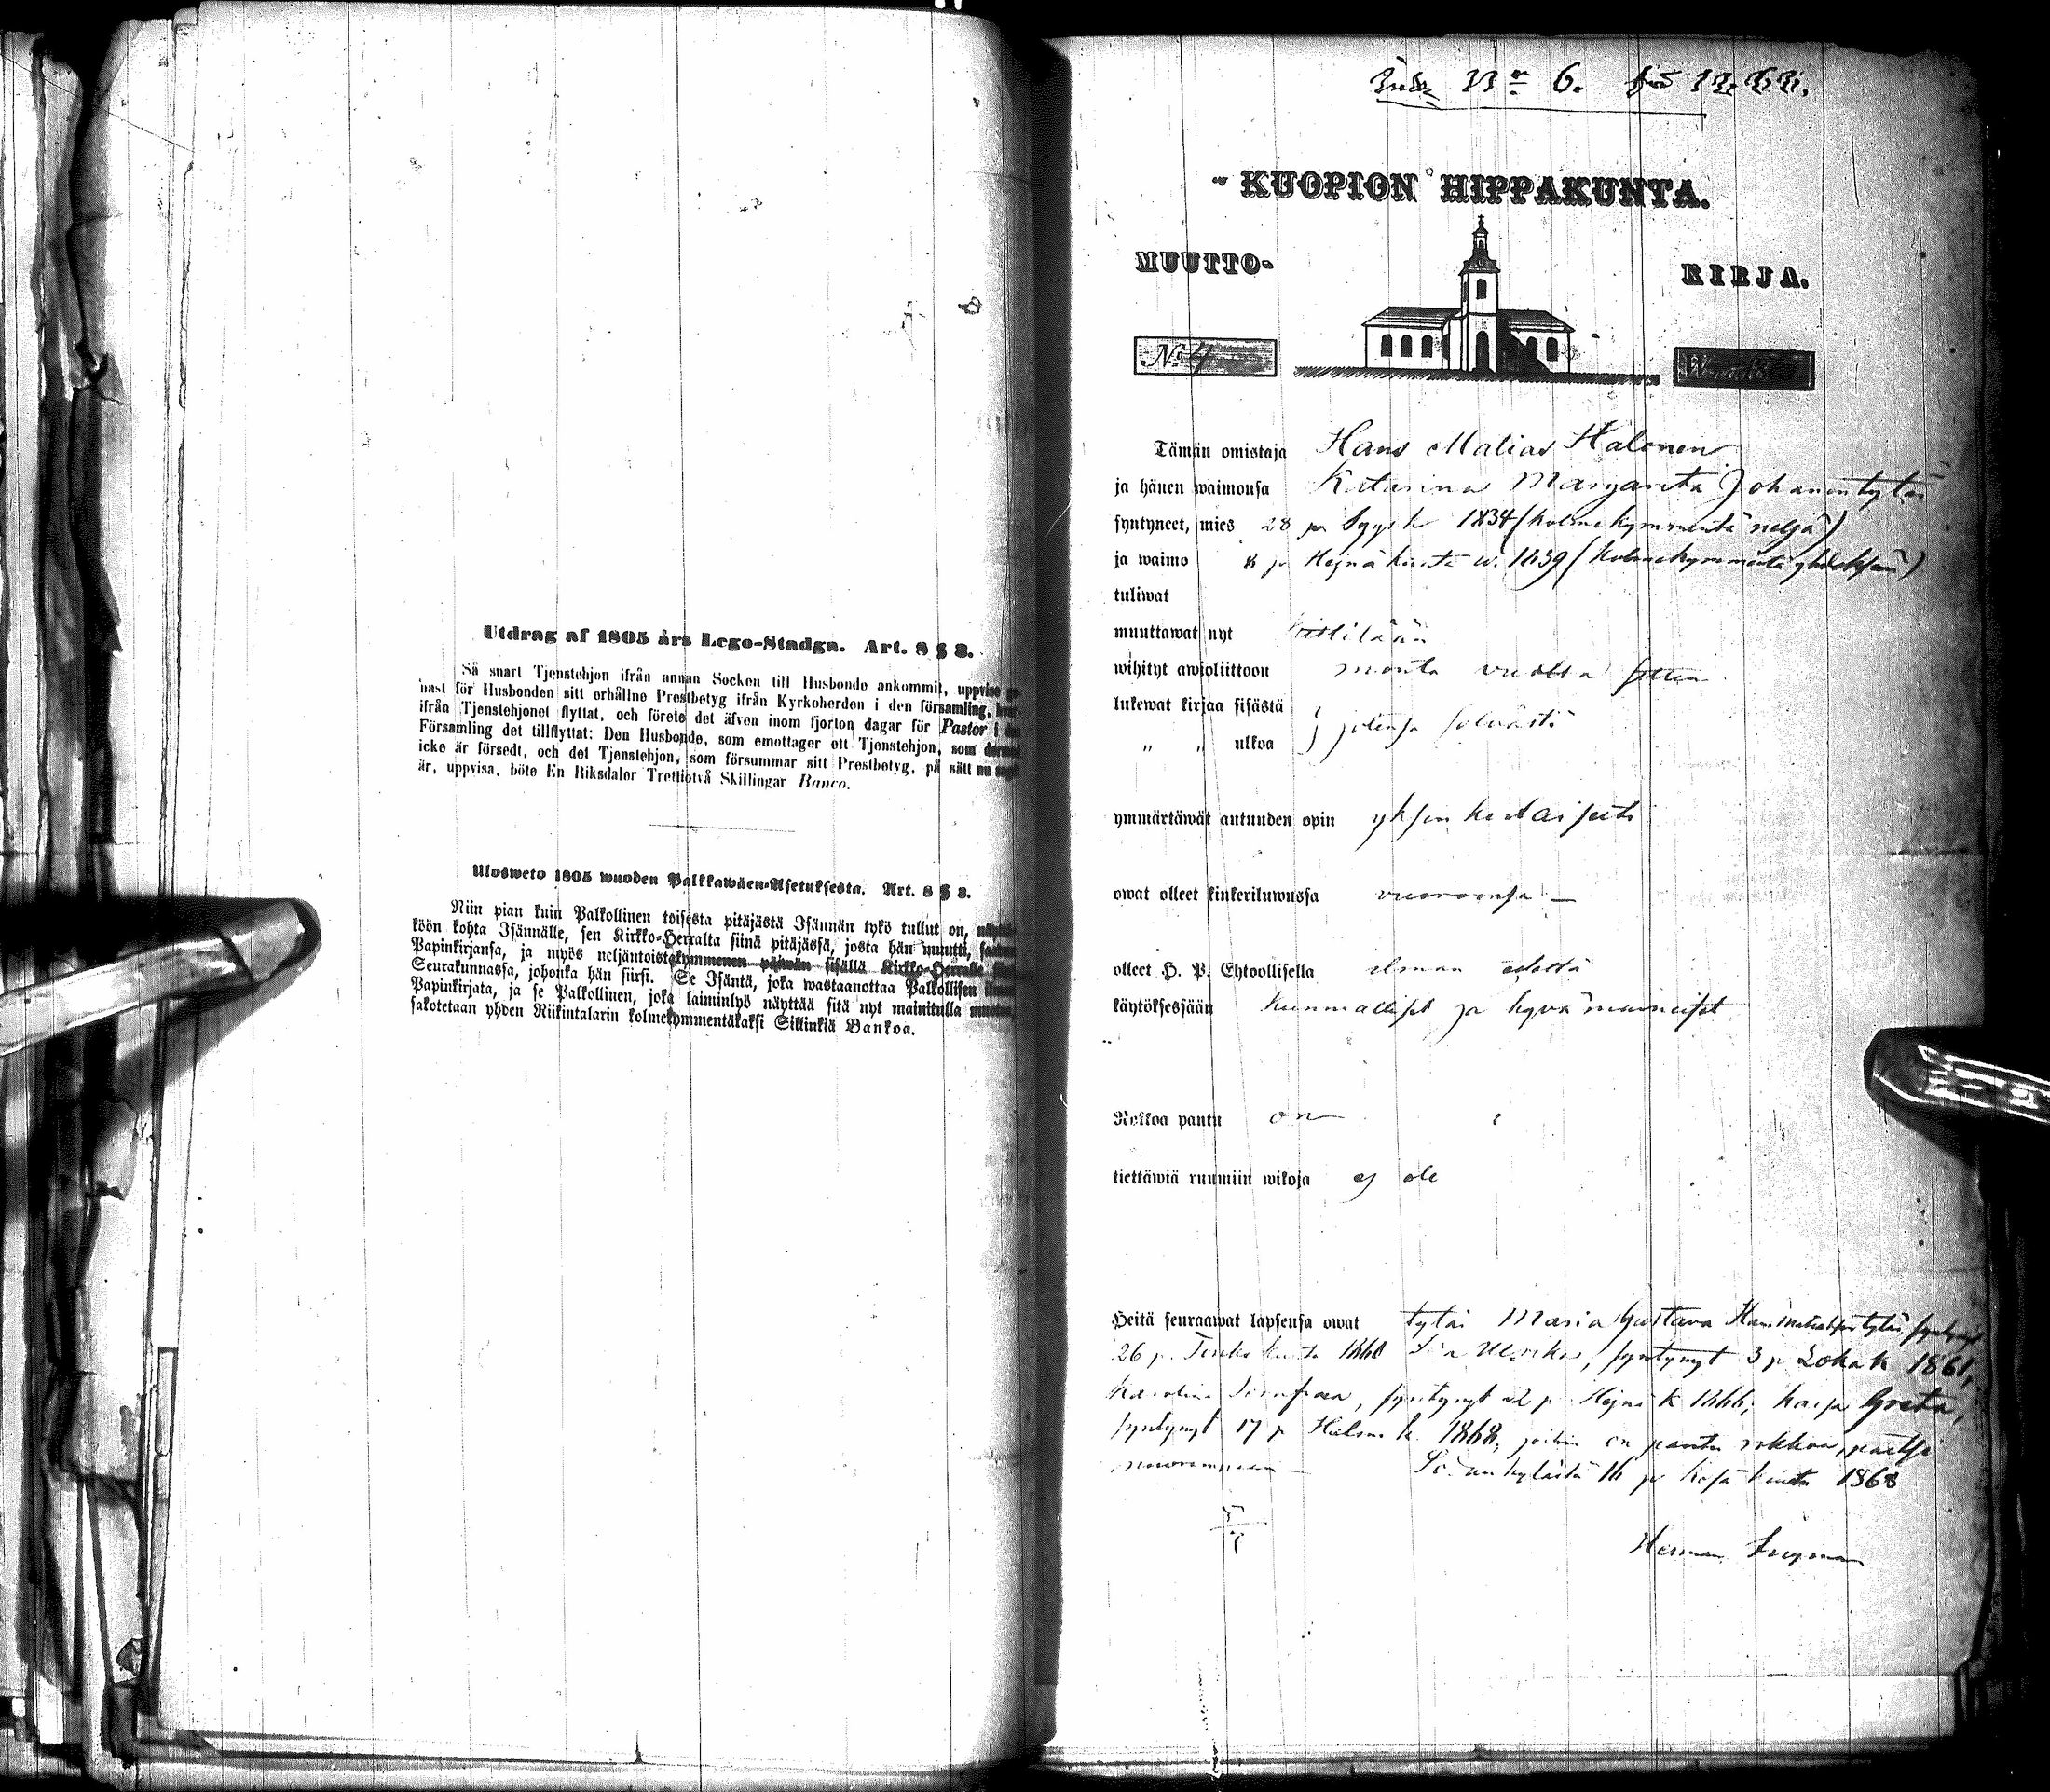 Utdrag af 1805 års Lego-Stadga. Art. 8 § 8.
Så snart Tjenstehjon ifrån annan Socken till Husbonde ankommit, uppvise
nast för Husbonden sitt erhållne Prestbetyg ifrån Kyrkoherden i den församling,
ifrån Tjenstehjonet flyttat, och förete det äfven inom fjorton dagar för Pastor i
Församling det tillflyttat: Den Husbonde, som emottager ett Tjenstehjon, som
icke är försedt, och det Tjenstehjon, som försummar sitt Prestbetyg, på sätt nu
är, uppvisa, böte En Riksdaler Trettiotvå Skillingar Banco.
Ulosweto 1805 wuoden Palkkawäen-Asetuksesta. Art. 8 § 8.
Niin pian kuin Palkollinen toisesta pitäjästä Isännän tykö tullut on,
köön kohta Isännälle, sen Kirkko-Herralta siinä pitäjässä, josta hän muutti,
Papinkirjansa, ja myös neljäntoistakymmenen päiwän sisällä Kirkko-Herralle
Seurakunnassa, johonka hän siirsi. Se Isäntä, joka wastaanottaa Palkollisen
Papinkirjata, ja se Palkollinen, joka laiminlyö näyttää sitä nyt mainitulla
sakotetaan yhden Riikintalarin kolmekymmentäkaksi Sillinkiä Bankoa.
6.
KUOPION HIPPAKUNTA.
MUUTTO- KIRJA.
No 4
Tämän omistaja Hans Matias Halonen
ja hänen waimonsa Katarina Margareta Johanintytär
syntyneet, mies 28 p Syysk 1834 (kolmekymmentä neljä)
ja waimo 8 p Hejnäkuuta w. 1839 (kolmekymmentä yhdeksän)
tuliwat
muuttawat nyt Kittilään
wihityt awioliittoon monta vuotta sitten
lukewat kirjaa sisästä
„ „ ulkoa } jotensa selvästi
ymmärtäwät autuuden opin yksinkertaisesti
owat olleet kinkeriluwussa vuoroonsa –
olleet H. P. Ehtoollisella ilman estettä
käytöksessään kunnialliset ja hyvämaineiset
Rokkoa pantu on
tiettäwiä ruumiin wikoja ej ole
Heitä seuraawat lapsensa owat tytär Maria Gustava Hansmatiaksentytär syntynyt
26 p. Toukokuuta 1860 Ulrika, syntynyt 3 p Lokak 1861,
Karolina , syntynyt 22 p Hejnäk 1866, Kaisa Greta,
syntynyt 17 p Helmik. 1868, joihin on pantu rokkoa, paitsi
nuorempaan – Sodankylästä 16 p Kesäkuuta 1868
Herman